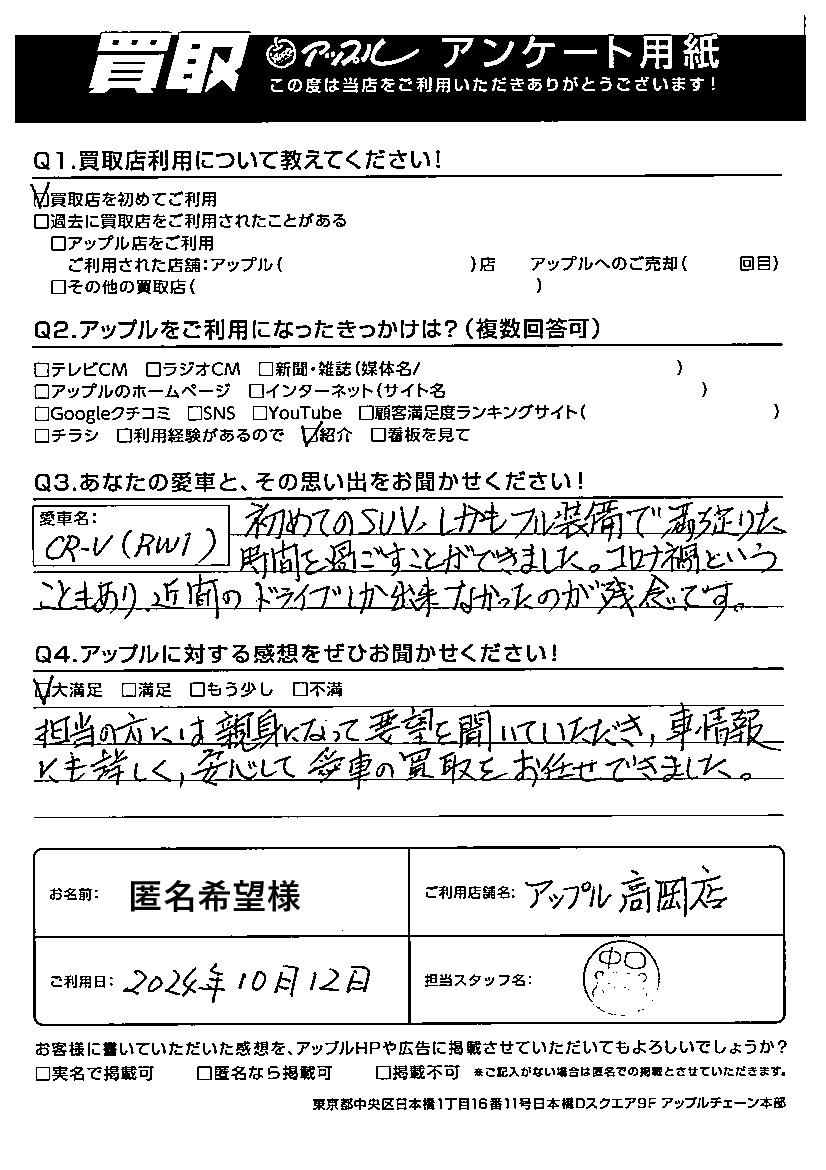 買取 アップル アンケート用紙
この度は当店をご利用いただきありがとうございます！
Q1.買取店利用について教えてください！
☑買取店を初めてご利用
□過去に買取店をご利用されたことがある
□アップル店をご利用
ご利用された店舗：アップル（ ）店 アップルへのご売却（ 回目）
□その他の買取店（ ）
Q2.アップルをご利用になったきっかけは？（複数回答可）
□テレビCM □ラジオCM □新聞・雑誌（媒体名/ ）
□アップルのホームページ □インターネット（サイト名 ）
□Googleクチコミ □SNS □YouTube □顧客満足度ランキングサイト（ ）
□チラシ □利用経験があるので ☑紹介 □看板を見て
Q3.あなたの愛車と、その思い出をお聞かせください！
愛車名：
CR-V（RW1）
初めてのSUV、しかもフル装備で満ち足りた
時間を過ごすことができました。コロナ禍という
こともあり、近間のドライブしか出来なかったのが残念です。
Q4.アップルに対する感想をぜひお聞かせください！
☑大満足 □満足 □もう少し □不満
担当の方には親身になって要望を聞いていただき、車情報
にも詳しく、安心して愛車の買取をお任せできました。
お名前： 匿名希望様
ご利用店舗名： アップル高岡店
ご利用日： 2024年10月12日
担当スタッフ名： 中口
お客様に書いていただいた感想を、アップルHPや広告に掲載させていただいてもよろしいでしょうか？
□実名で掲載可 □匿名なら掲載可 □掲載不可 ※ご記入がない場合は匿名での掲載とさせていただきます。
東京都中央区日本橋1丁目16番11号日本橋Dスクエア9F アップルチェーン本部